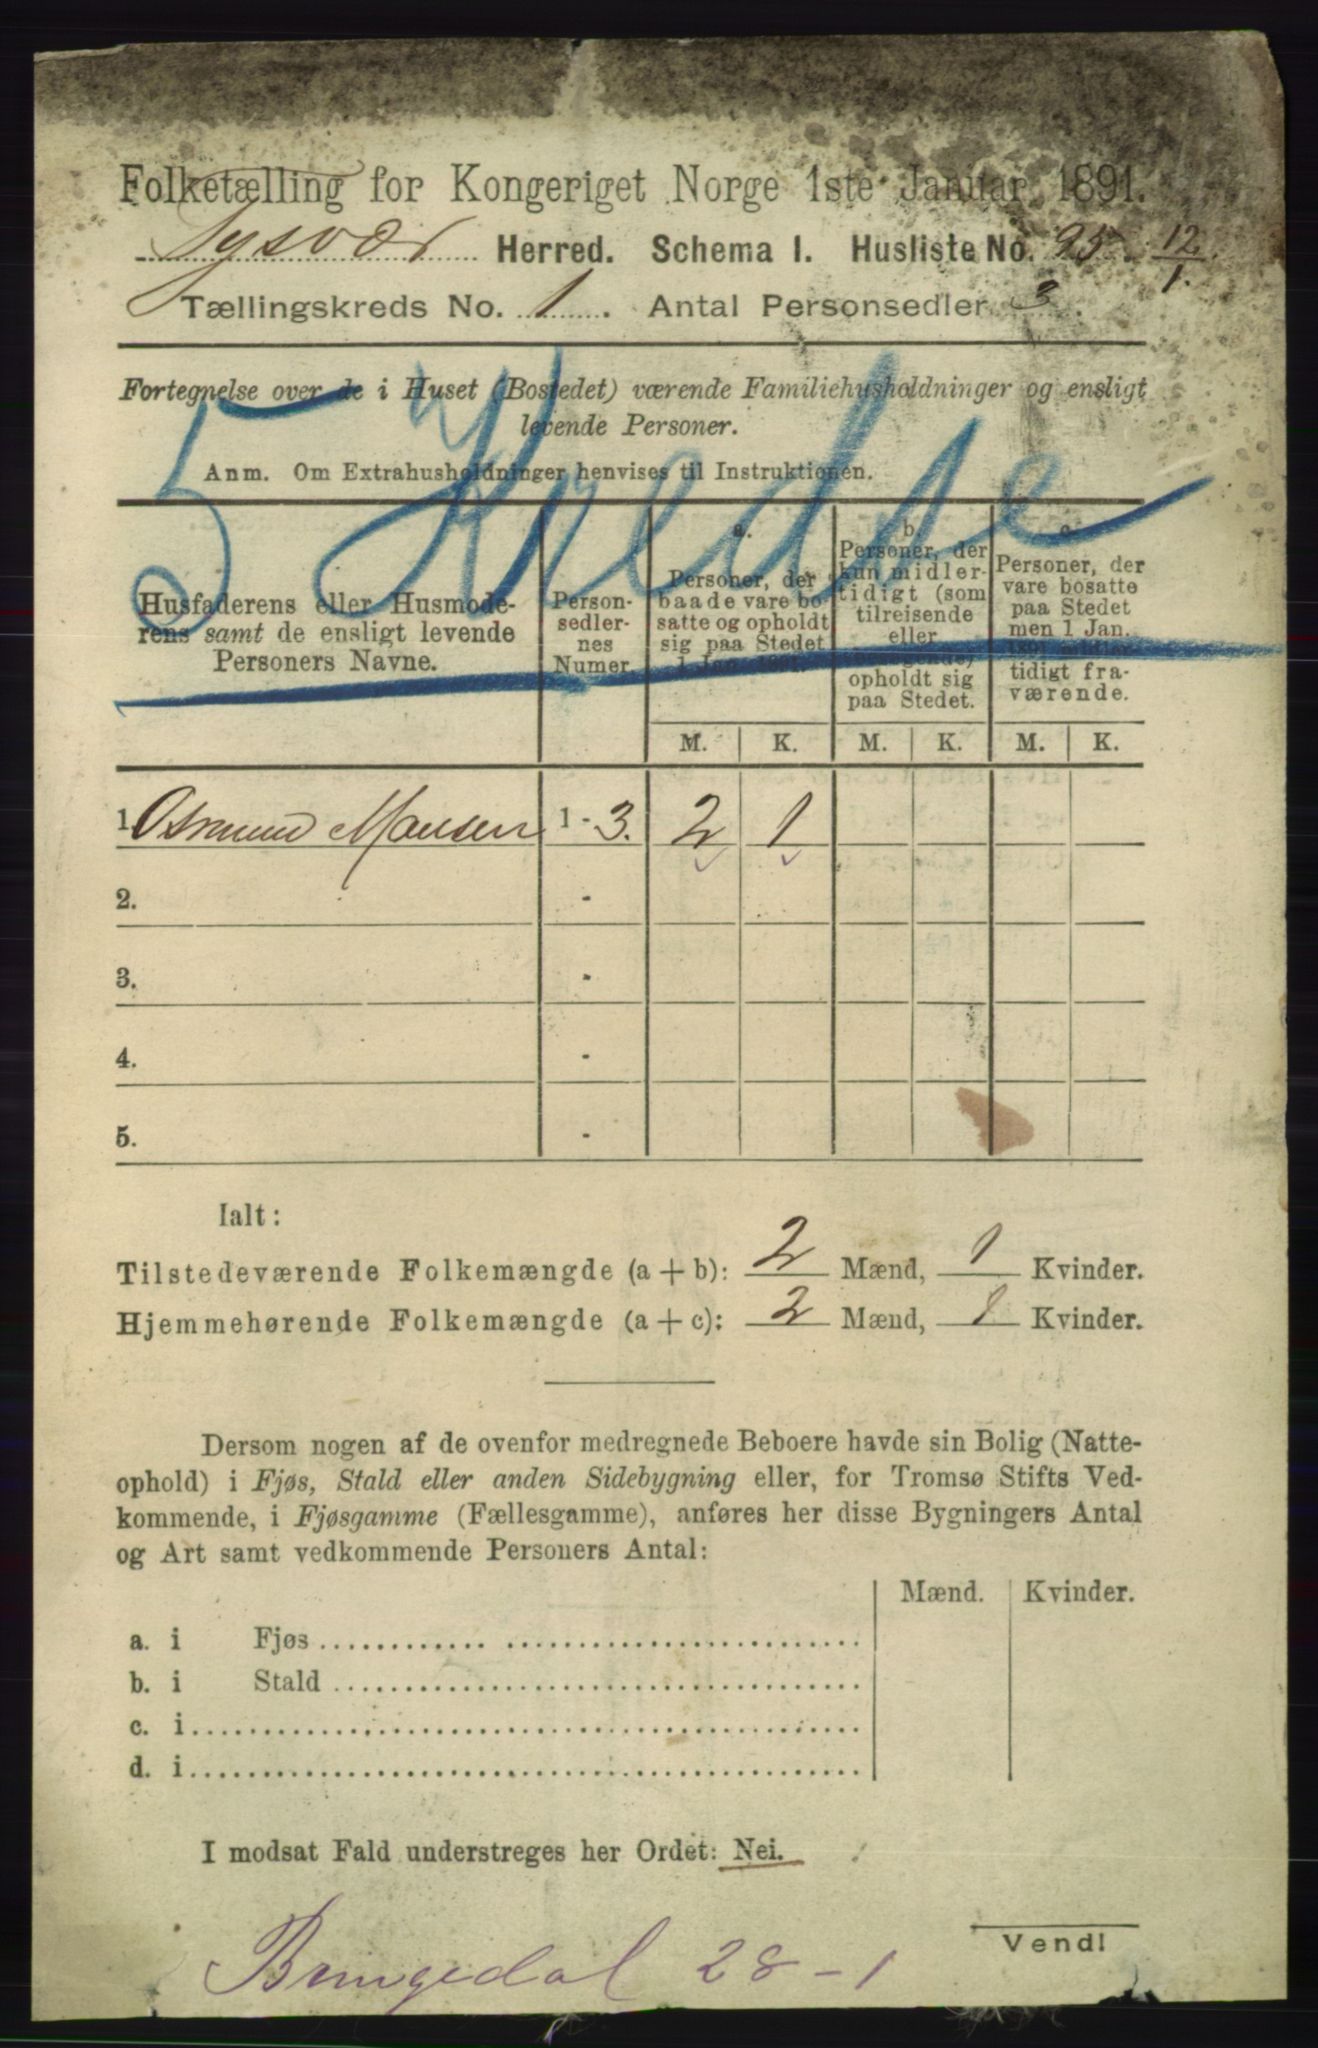 Folketælling for Kongeriget Norge 1ste Januar 1891.
Tysvær Herred. Schema I. Husliste No. 95. 12/1.
Tællingskreds No. 1. Antal Personsedler 3.
Fortegnelse over de i Huset (Bostedet) værende Familiehusholdninger og ensligt
levende Personer.
Anm. Om Extrahusholdninger henvises til Instruktionen.
5 Kredse
Husfaderens eller Husmode-
rens samt de ensligt levende
Personers Navne.
Person-
sedler-
nes
Numer.
a.
Personer, der
baade vare bo-
satte og opholdt
sig paa Stedet
1 Jan. 1891.
b.
Personer, der
kun midler-
tidigt (som
tilreisende
eller
besøgende)
opholdt sig
paa Stedet.
c.
Personer, der
vare bosatte
paa Stedet
men 1 Jan.
1891 midler-
tidigt fra-
værende.
M. K. M. K. M. K.
1. Osmund Mansen 1 - 3. 2 1
2. -
3. -
4. -
5. -
Ialt:
Tilstedeværende Folkemængde (a + b): 2 Mænd, 1 Kvinder.
Hjemmehørende Folkemængde (a + c): 2 Mænd, 1 Kvinder.
Dersom nogen af de ovenfor medregnede Beboere havde sin Bolig (Natte-
ophold) i Fjøs, Stald eller anden Sidebygning eller, for Tromsø Stifts Ved-
kommende, i Fjøsgamme (Fællesgamme), anføres her disse Bygningers Antal
og Art samt vedkommende Personers Antal:
Mænd. Kvinder.
a. i Fjøs
b. i Stald
c. i
d. i
I modsat Fald understreges her Ordet: Nei.
Vend!
Bringedal 28 - 1